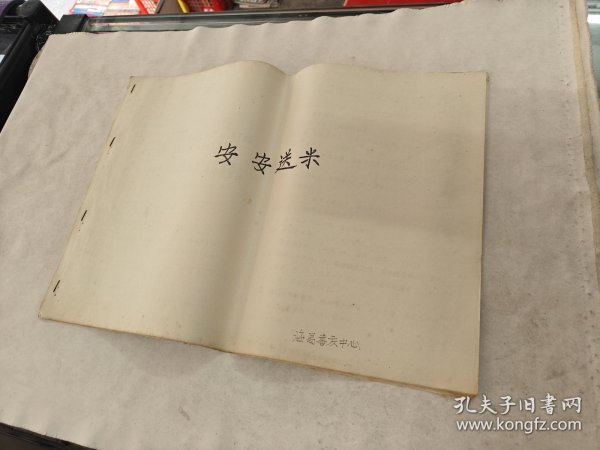 安安送米
中心
孔夫子旧书网
www.kongfz.com